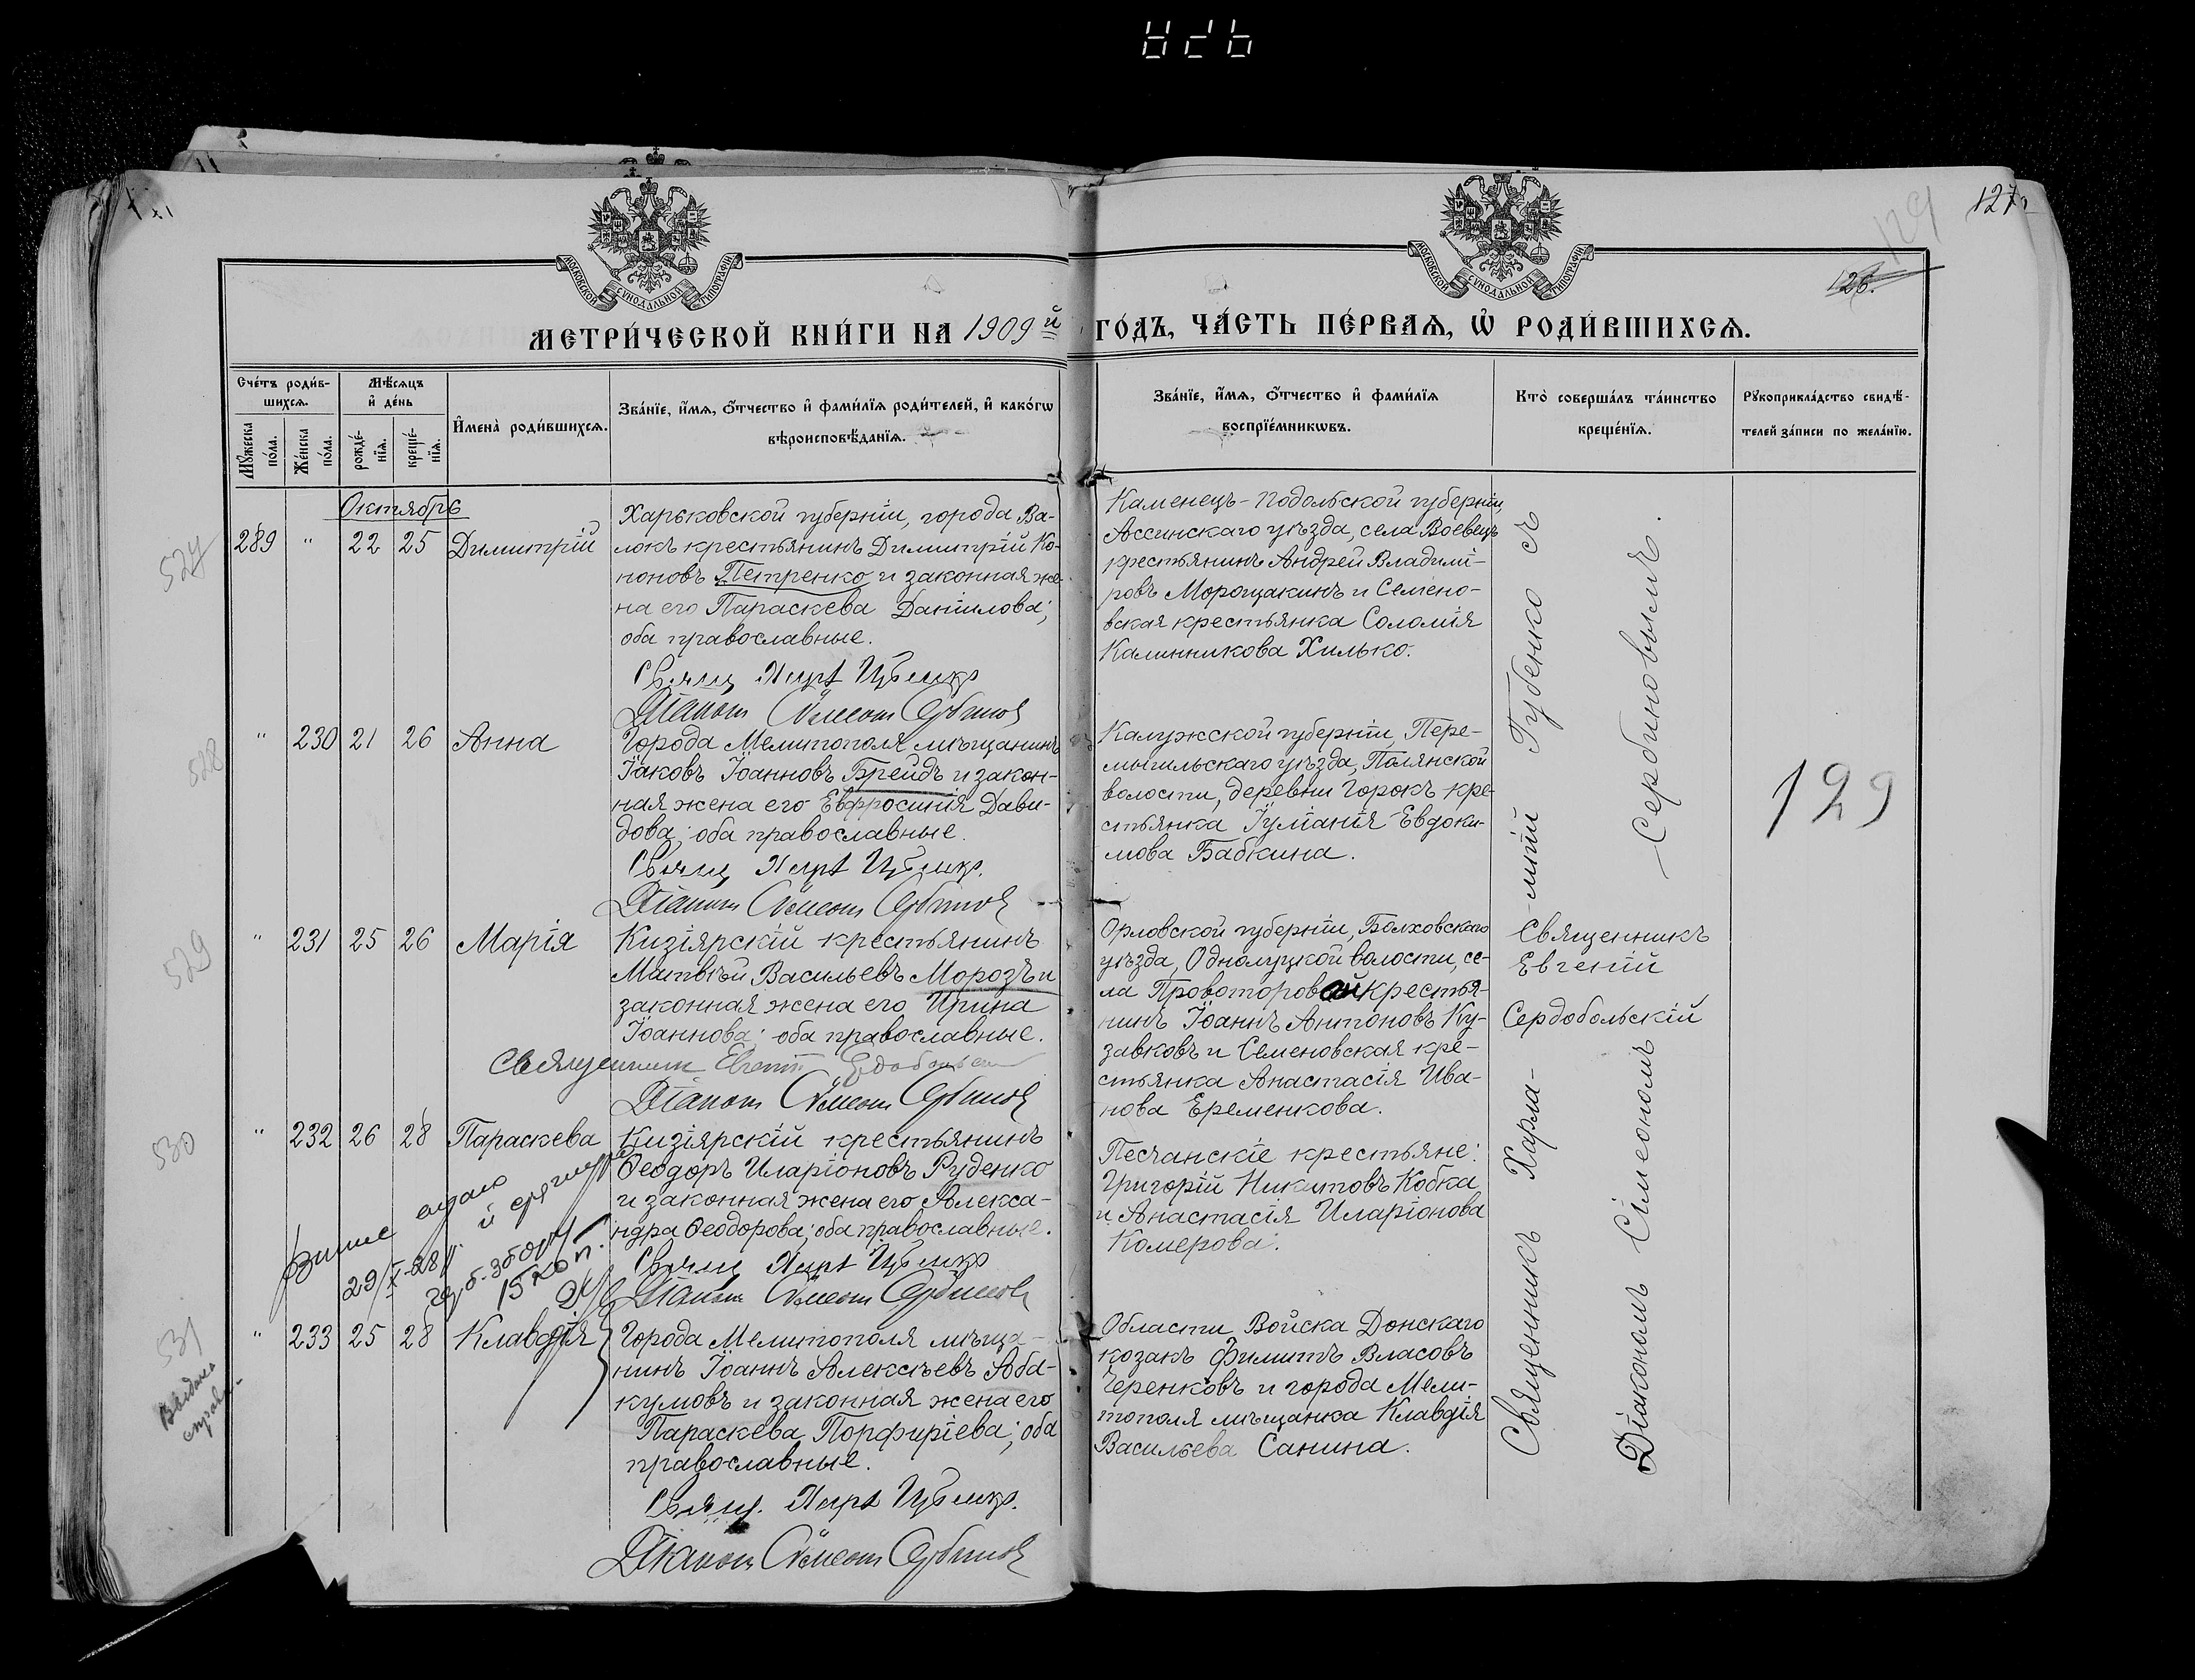 127
129
126.
МОСКОВСКОЙ СѴНОДАЛЬНОЙ ТИПОГРАФІИ
МОСКОВСКОЙ СѴНОДАЛЬНОЙ ТИПОГРАФІИ
МЕТРИ́ЧЕСКОЙ КНИ́ГИ НА 1909й ГО́ДЪ, ЧА́СТЬ ПЕ́РВАѦ, Ѡ҆ РОДИ́ВШИХСѦ.
Сче́тъ роди́в-
шихсѧ.
Мꙋ́жеска
по́ла.
Же́нска
по́ла.
Мѣ́сѧцъ
и҆ де́нь
рожде́-
нїѧ.
креще́-
нїѧ.
И҆мена̀ роди́вшихсѧ.
Зва́нїе, и҆́мѧ, ѻ҆́тчество и҆ фами́лїѧ роди́телей, и҆ како́гѡ
вѣроисповѣ́данїѧ.
Зва́нїе, и҆́мѧ, ѻ҆́тчество и҆ фами́лїѧ
воспрїе́мникѡвъ.
Кто̀ соверша́лъ та́инство
креще́нїѧ.
Рꙋкоприкла́дство свидѣ́-
телей за́писи по жела́нїю.
Октябрь
527
289 " 22 25 Димитрій
Харьковской губерніи, города Ва-
локъ крестьянинъ Димитрій Ко-
ноновъ Петренко и законная же-
на его Параскева Даніилова;
оба православные.
Свящ. Харл. Губенко
Діаконъ Сѵмеонъ Сербиновъ
Каменецъ-Подольской губерніи,
Ассинскаго уѣзда, села Воевецъ
крестьянинъ Андрей Владимі-
ровъ Морощакинъ и Семено-
вская крестьянка Соломія
Калинникова Хилько.
528
" 230 21 26 Анна
Города Мелитополя мѣщанинъ
Іаковъ Іоанновъ Брейдъ и закон-
ная жена его Евфросинія Дави-
дова; оба православные.
Свящ. Харл. Губенко.
Діаконъ Сѵмеонъ Сербиновъ
Калужской губерніи, Пере-
мышльскаго уѣзда, Полянской
волости, деревни Горокъ кре-
стьянка Іуліанія Евдоки-
мова Бабкина.
529
" 231 25 26 Марія
Кизіярскій крестьянинъ
Матвѣй Васильевъ Морозъ и
законная жена его Ирина
Іоаннова; оба православные.
Священникъ Евгеній Сердобольскій
Діаконъ Сѵмеонъ Сербиновъ
Орловской губерніи, Болховскаго
уѣзда, Однолуцкой волости, се-
ла Провоторовой крестья-
нинъ Іоаннъ Антоновъ Ку-
завковъ и Семеновская кре-
стьянка Анастасія Ива-
нова Еременкова.
Священникъ
Евгеній
Сердобольскій
530
" 232 26 28 Параскева
Кизіярскій крестьянинъ
Ѳеодоръ Иларіоновъ Руденко
и законная жена его Алекса-
ндра Ѳеодорова; оба православные.
Свящ. Харл. Губенко
Діаконъ Сѵмеонъ Сербиновъ
Песчанскіе крестьяне:
Григорій Никитовъ Кобка
и Анастасія Иларіонова
Комерова.
29/X-28 р.
15 коп.
531
" 233 25 28 Клавдія
Города Мелитополя мѣща-
нинъ Іоаннъ Алексѣевъ Аба-
кумовъ и законная жена его
Параскева Порфиріева; оба
православные.
Свящ. Харл. Губенко.
Діаконъ Сѵмеонъ Сербиновъ
Области Войска Донскаго
козакъ Филиппъ Власовъ
Черенковъ и города Мели-
тополя мѣщанка Клавдія
Васильева Санина.
Священникъ Харла-мпій Губенко съ
Діакономъ Сімеономъ Сербиновымъ.
129